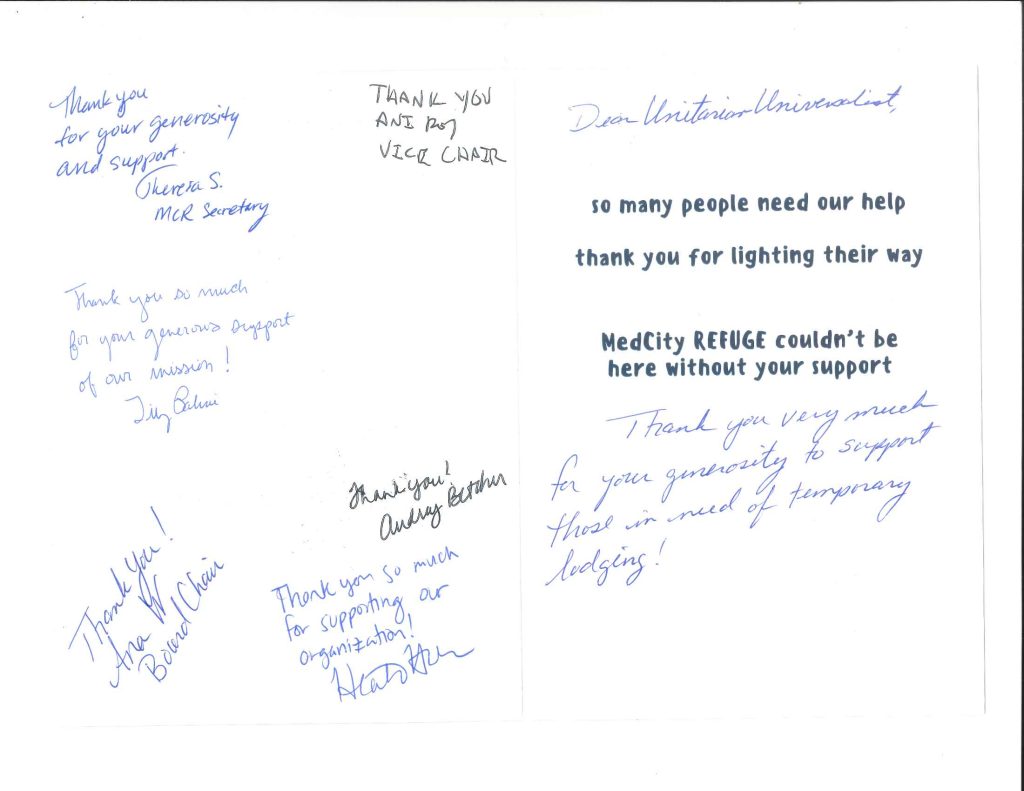 Thank you
for your generosity
and support.
Theresa S.
MCR Secretary
THANK YOU
ANI
VICE CHAIR
Thank you so much
for your generous support
of our mission!
Thank you!
Audrey Betcher
Thank you!
Ana W
Board Chair
Thank you so much
for supporting our
organization!
Dear Unitarian Universalist,
so many people need our help
thank you for lighting their way
MedCity REFUGE couldn't be
here without your support
Thank you very much
for your generosity to support
those in need of temporary
lodging!